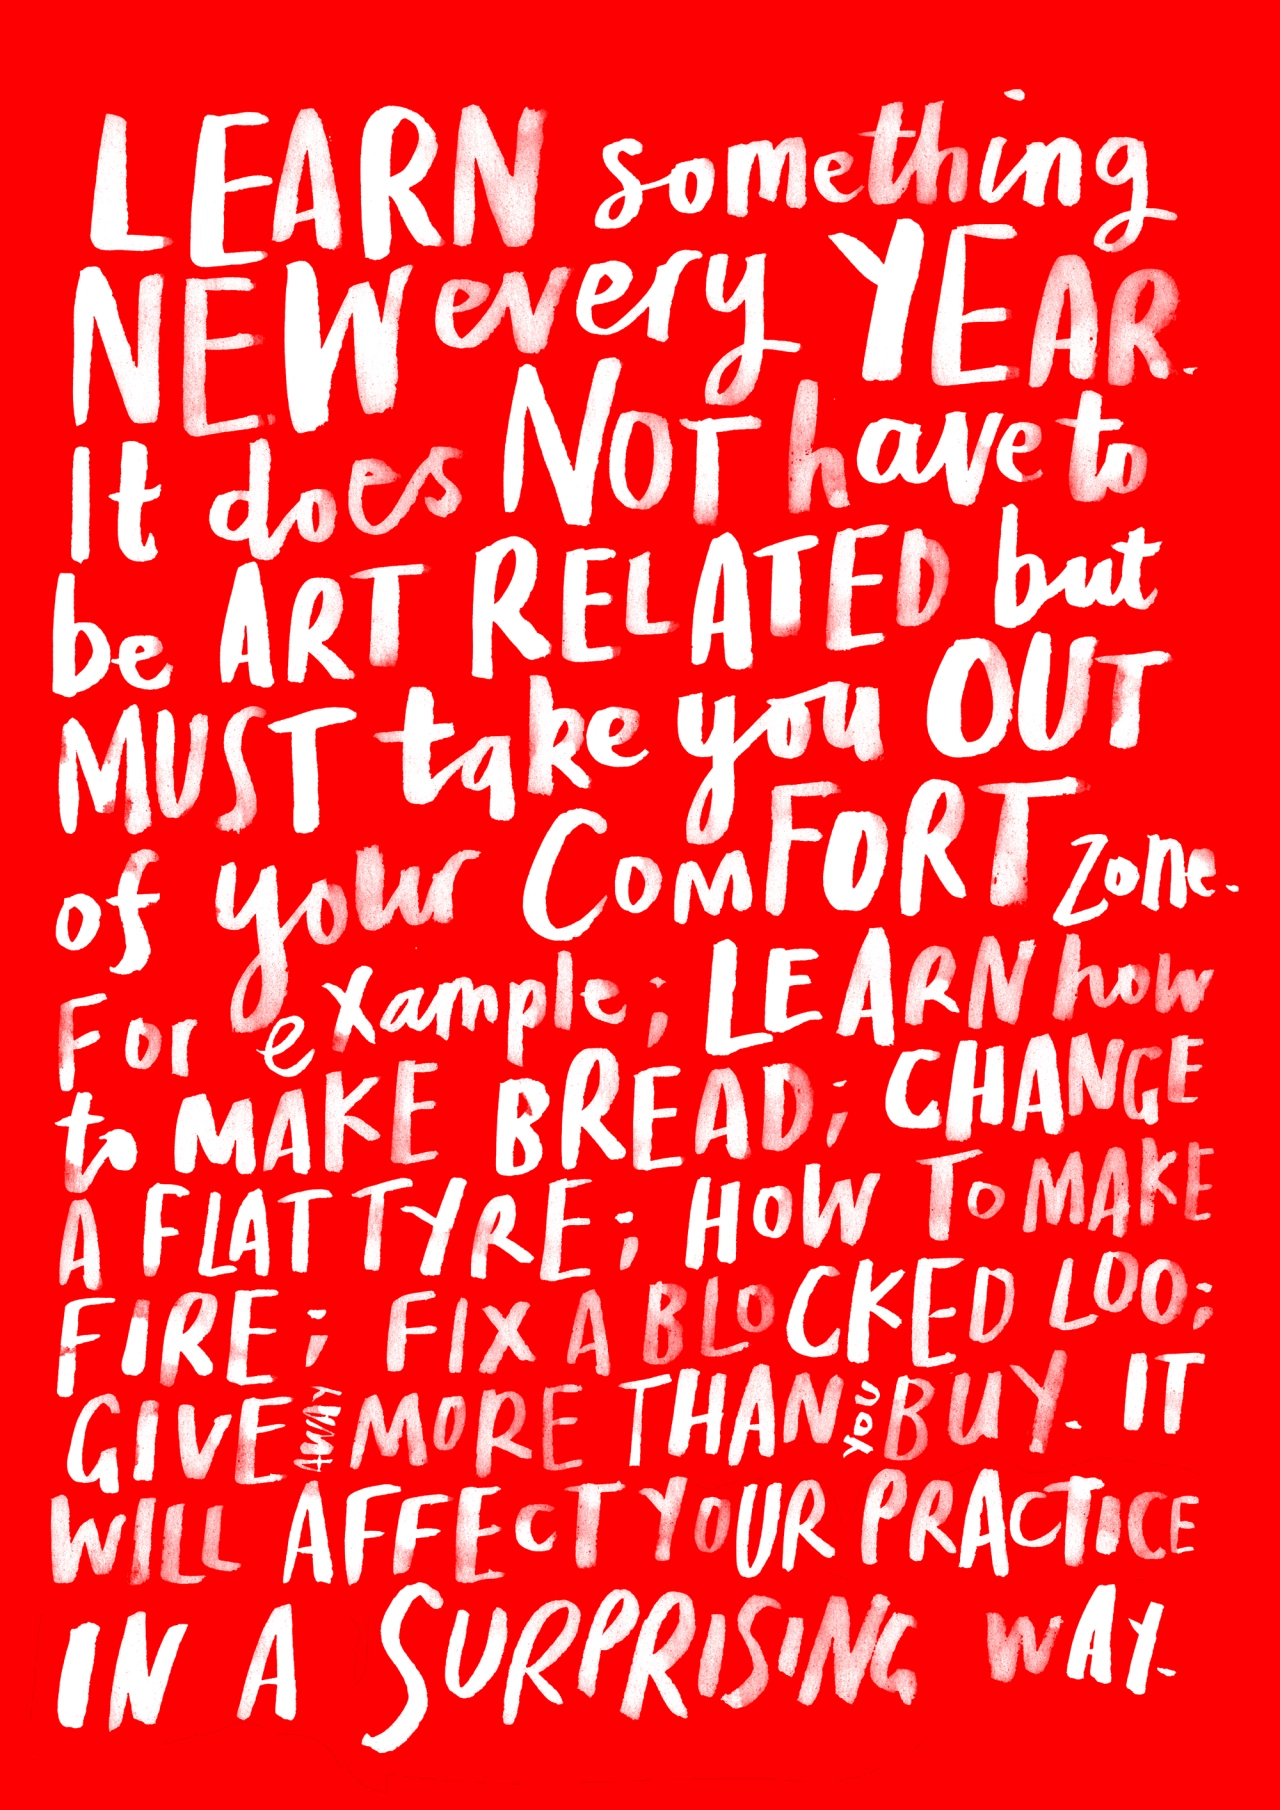 LEARN something
NEW every YEAR.
It does NOT have to
be ART RELATED but
MUST take you OUT
of your COMFORT zone.
For example; LEARN how
to MAKE BREAD; CHANGE
A FLAT TYRE; HOW TO MAKE
FIRE; FIX A BLOCKED LOO;
GIVE AWAY MORE THAN YOU BUY. IT
WILL AFFECT YOUR PRACTICE
IN A SURPRISING WAY.